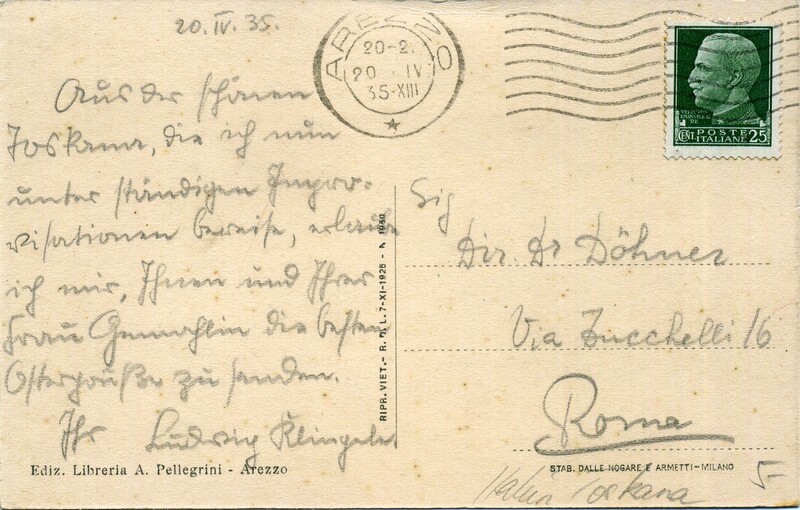 20.IV.35.
AREZZO
20-2.
20 IV
35-XIII
CENT. POSTE 25
ITALIANE
Aus der schönen
Toskana, die ich nun
unter ständigen Impro-
visationen bereise, erlaube
ich mir, Ihnen und Ihrer
Frau Gemahlin die besten
Ostergrüße zu senden.
Ihr Ludwig
Sig
Dir. Dr Döhner
Via Zucchelli 16
Roma
RIPR. VIET.- R. D. L. 7-XI-1925 - N. 1950
Ediz. Libreria A. Pellegrini - Arezzo
STAB. DALLE NOGARE E ARMETTI-MILANO
Italien Toskana